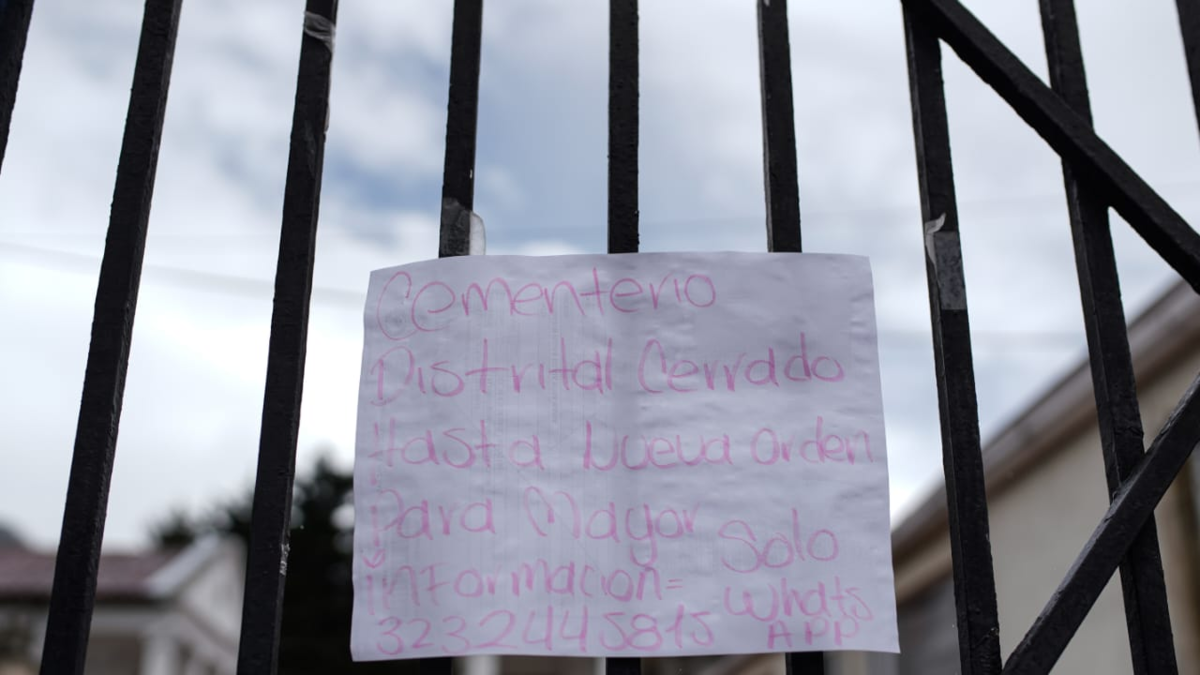 Cementerio
Distrital Cerrado
Hasta Nueva Orden
Para Mayor Solo
información= Whats
3232445815 APP